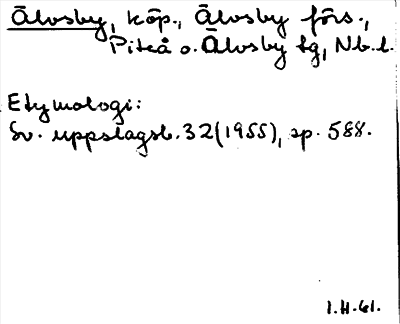 Älvsby, köp., Älvsby förs.,
Piteå o. Älvsby tg, Nb. l.
Etymologi:
Sv. uppslagsb. 32 (1955), sp. 588.
1.H.61.